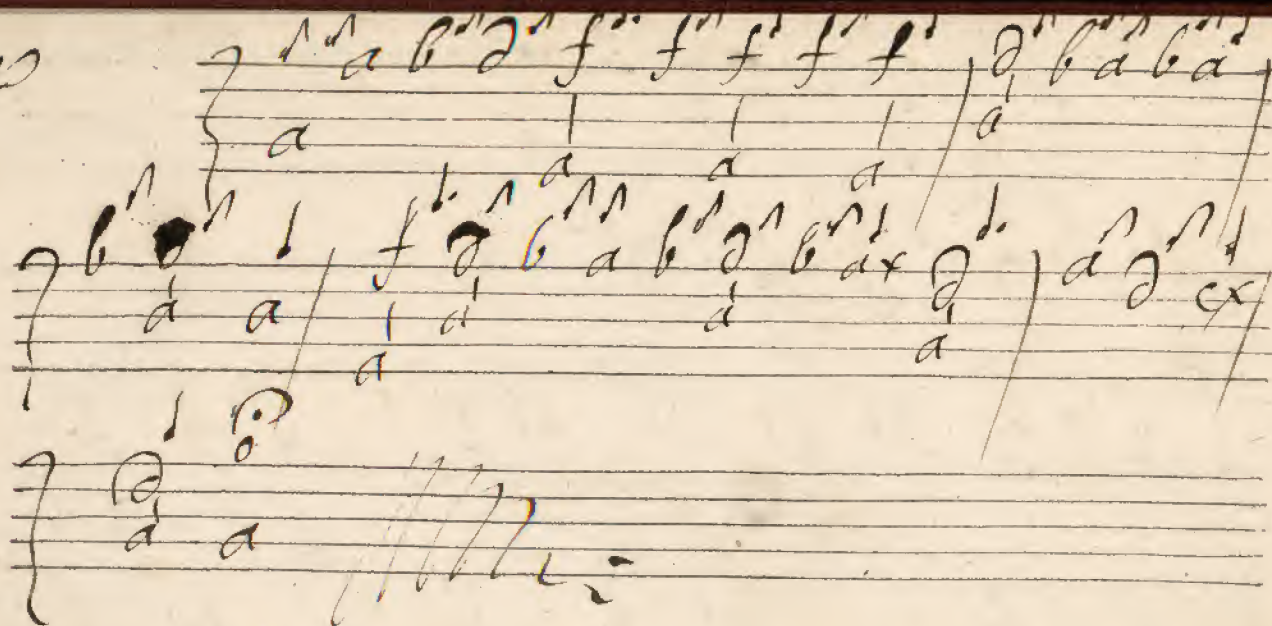 a a b d f f f f f d b a b a
a a a a
b d a f d b a b d b a x d a d c x
a a a a a
d
a a